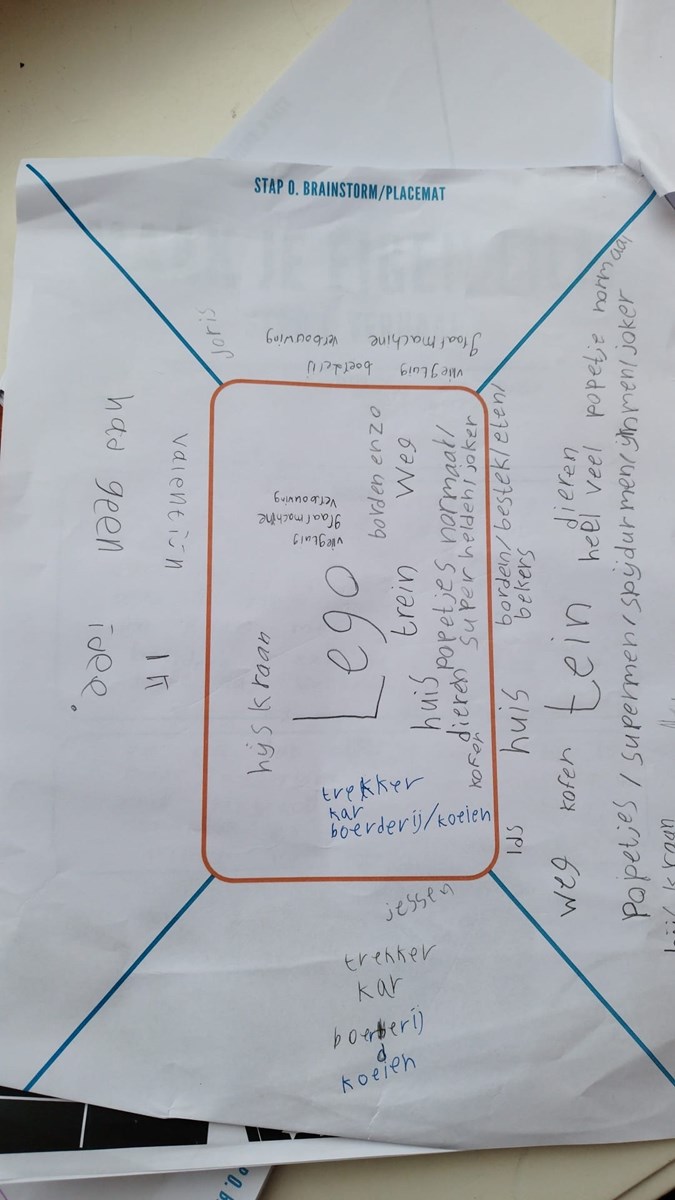 STAP 0. BRAINSTORM/PLACEMAT
Joris
vliegtuig boerderij
graafmachine verbouwing
valentijn
Ik
had geen idee.
Lego
vliegtuig
graafmachine
verbouwing
hijskraan
borden enzo
trein weg
huis popetjes normaal/
dieren super helden/joker
kofer
trekker
kar
boerderij/koeien
huis borden/bestek/eten/
bekers
weg kofer tein dieren
heel veel popetje normaal
popetjes/supermen/spijdurmen/ijnmen/joker
hijskraan
jessen
trekker
kar
boerderij
d
koeien